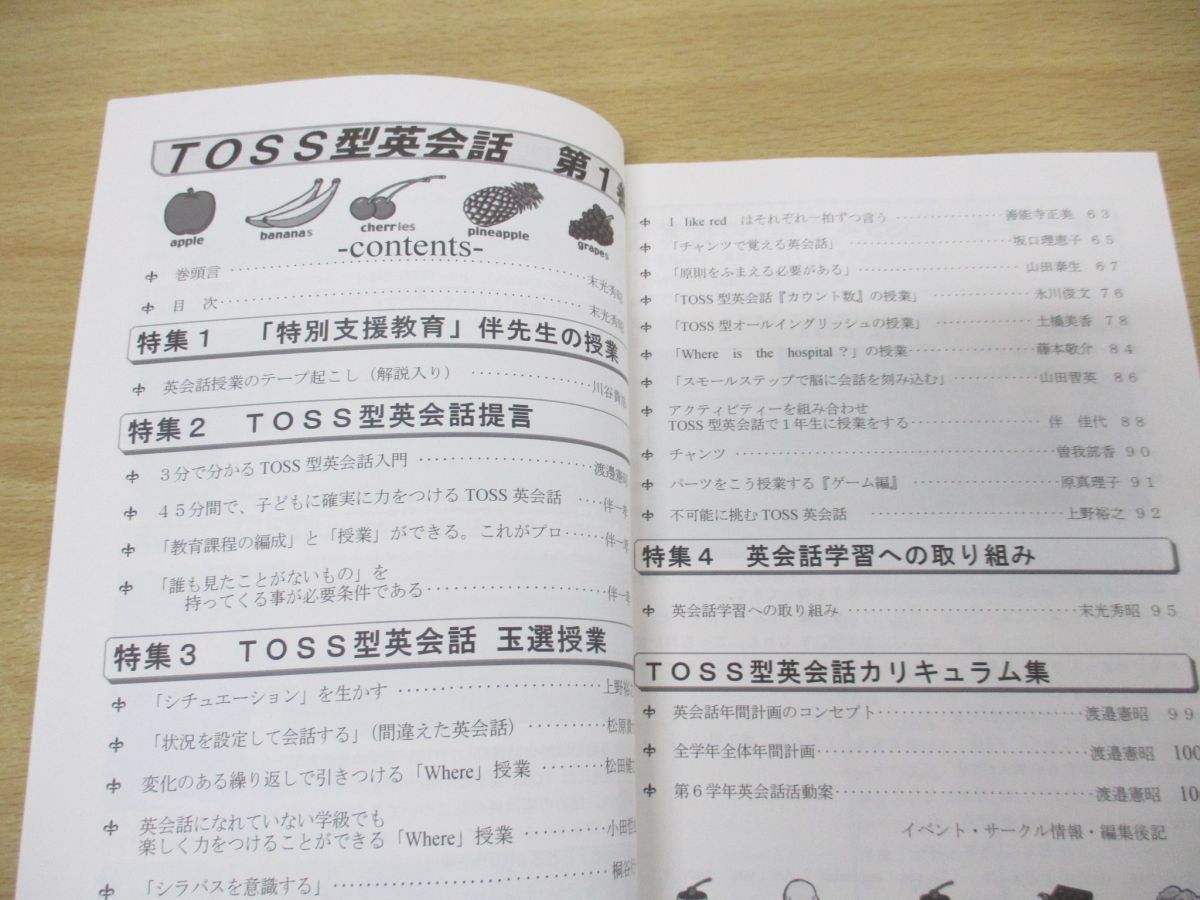 TOSS型英会話 第1
apple
bananas
cherries
pineapple
grapes
-contents-
巻頭言 末光秀昭
目 次 末光秀昭
特集1 「特別支援教育」伴先生の授業
英会話授業のテープ起こし(解説入り) 川谷貴浩
特集2 TOSS型英会話提言
3分で分かるTOSS型英会話入門 渡邉憲昭
45分間で、子どもに確実に力をつけるTOSS英会話 伴一孝
「教育課程の編成」と「授業」ができる。これがプロ 伴一孝
「誰も見たことがないもの」を
持ってくる事が必要条件である 伴一孝
特集3 TOSS型英会話 玉選授業
「シチュエーション」を生かす 上野裕之
「状況を設定して会話する」(間違えた英会話) 松原貴
変化のある繰り返しで引きつける「Where」授業 松田健
英会話になれていない学級でも
楽しく力をつけることができる「Where」授業 小田哲也
「シラバスを意識する」 桐谷
I like red はそれぞれ一拍ずつ言う 善能寺正美 63
「チャンツで覚える英会話」 坂口理恵子 65
「原則をふまえる必要がある」 山田泰生 67
「TOSS型英会話『カウント数』の授業」 永川俊文 76
「TOSS型オールイングリッシュの授業」 土橋美香 78
「Where is the hospital?」の授業 藤本敬介 84
「スモールステップで脳に会話を刻み込む」 山田智英 86
アクティビティーを組み合わせ
TOSS型英会話で1年生に授業をする 伴 佳代 88
チャンツ 曽我部香 90
パーツをこう授業する『ゲーム編』 原真理子 91
不可能に挑むTOSS英会話 上野裕之 92
特集4 英会話学習への取り組み
英会話学習への取り組み 末光秀昭 95
TOSS型英会話カリキュラム集
英会話年間計画のコンセプト 渡邉憲昭 99
全学年全体年間計画 渡邉憲昭 100
第6学年英会話活動案 渡邉憲昭 10
イベント・サークル情報・編集後記